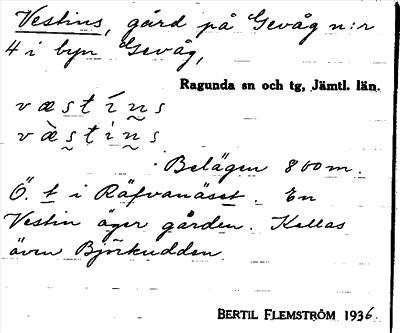 Vestins, gård på Gevåg n:r
4 i byn Gevåg,
Ragunda sn och tg, Jämtl. län.
væstíns
væ̀stìns
. Belägen 800 m.
Ö. t i Räfvanäset. En
Vestin äger gården. Kallas
även Björkudden.
BERTIL FLEMSTRÖM 1936.